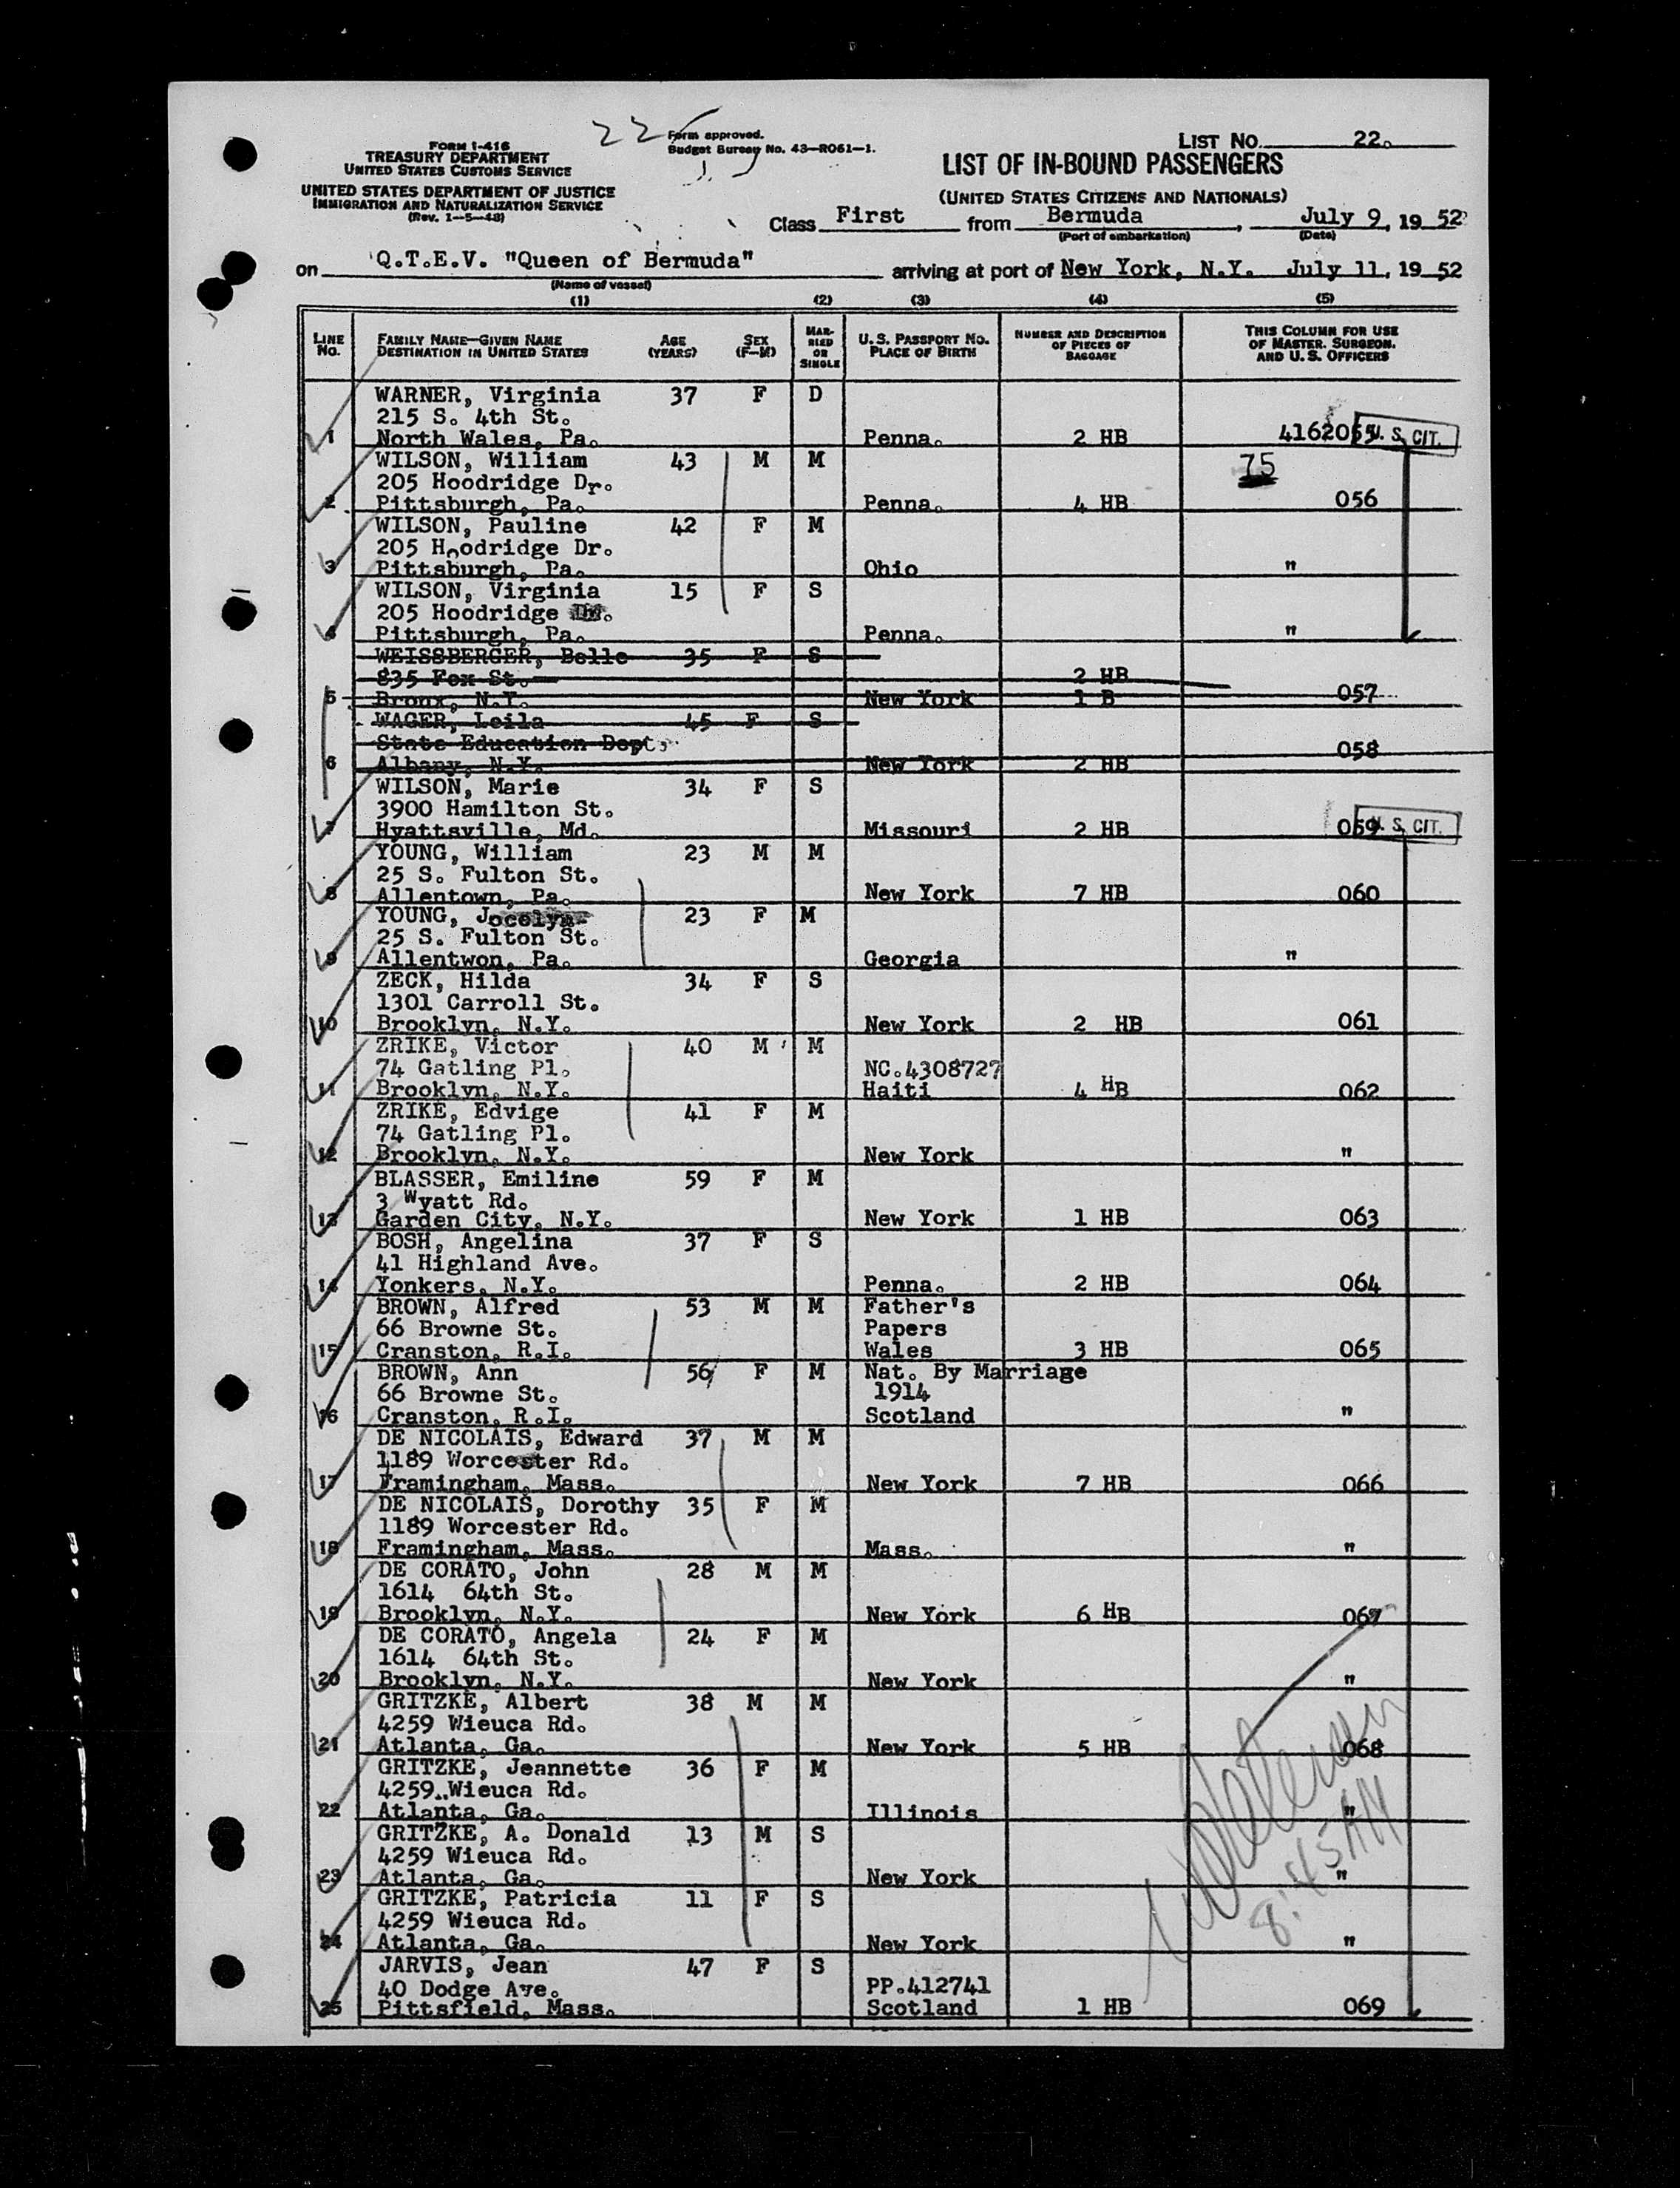 22
FORM I-416
TREASURY DEPARTMENT
UNITED STATES CUSTOMS SERVICE
UNITED STATES DEPARTMENT OF JUSTICE
IMMIGRATION AND NATURALIZATION SERVICE
(Rev. 1-5-48)
Form approved.
Budget Bureau No. 43-R061-1.
LIST NO. 22.
LIST OF IN-BOUND PASSENGERS
(UNITED STATES CITIZENS AND NATIONALS)
Class First from Bermuda, July 9, 19 52
(Port of embarkation) (Date)
on Q.T.E.V. "Queen of Bermuda" arriving at port of New York, N.Y. July 11, 19 52
(Name of vessel)
(1) (2) (3) (4) (5)
LINE No. FAMILY NAME—GIVEN NAME DESTINATION IN UNITED STATES AGE (YEARS) SEX (F-M) MARRIED OR SINGLE U.S. PASSPORT NO. PLACE OF BIRTH NUMBER AND DESCRIPTION OF PIECES OF BAGGAGE THIS COLUMN FOR USE OF MASTER, SURGEON, AND U. S. OFFICERS
WARNER, Virginia 37 F D
215 S. 4th St.
1 North Wales, Pa. Penna. 2 HB 4162055 U. S. CIT.
WILSON, William 43 M M 75
205 Hoodridge Dr.
2 Pittsburgh, Pa. Penna. 4 HB 056
WILSON, Pauline 42 F M
205 Hoodridge Dr.
3 Pittsburgh, Pa. Ohio "
WILSON, Virginia 15 F S
205 Hoodridge
4 Pittsburgh, Pa. Penna. "
WEISSBERGER, Belle 35 F S
835 Fox St. 2 HB
5 Bronx, N.Y. New York 1 B 057
WAGER, Leila 45 F S
State Education Dept.
6 Albany, N.Y. New York 2 HB 058
WILSON, Marie 34 F S
3900 Hamilton St.
7 Hyattsville, Md. Missouri 2 HB 059 U. S. CIT.
YOUNG, William 23 M M
25 S. Fulton St.
8 Allentown, Pa. New York 7 HB 060
YOUNG, Jocelyn 23 F M
25 S. Fulton St.
9 Allentwon, Pa. Georgia "
ZECK, Hilda 34 F S
1301 Carroll St.
10 Brooklyn, N.Y. New York 2 HB 061
ZRIKE, Victor 40 M M
74 Gatling Pl. NC.4308727
11 Brooklyn, N.Y. Haiti 4 HB 062
ZRIKE, Edvige 41 F M
74 Gatling Pl.
12 Brooklyn, N.Y. New York "
BLASSER, Emiline 59 F M
3 Wyatt Rd.
13 Garden City, N.Y. New York 1 HB 063
BOSH, Angelina 37 F S
41 Highland Ave.
14 Yonkers, N.Y. Penna. 2 HB 064
BROWN, Alfred 53 M M Father's
66 Browne St. Papers
15 Cranston, R.I. Wales 3 HB 065
BROWN, Ann 56 F M Nat. By Marriage
66 Browne St. 1914
16 Cranston, R.I. Scotland "
DE NICOLAIS, Edward 37 M M
1189 Worcester Rd.
17 Framingham, Mass. New York 7 HB 066
DE NICOLAIS, Dorothy 35 F M
1189 Worcester Rd.
18 Framingham, Mass. Mass. "
DE CORATO, John 28 M M
1614 64th St.
19 Brooklyn, N.Y. New York 6 HB 067
DE CORATO, Angela 24 F M
1614 64th St.
20 Brooklyn, N.Y. New York "
GRITZKE, Albert 38 M M
4259 Wieuca Rd.
21 Atlanta, Ga. New York 5 HB 068
GRITZKE, Jeannette 36 F M
4259 Wieuca Rd.
22 Atlanta, Ga. Illinois "
GRITZKE, A. Donald 13 M S
4259 Wieuca Rd.
23 Atlanta, Ga. New York "
GRITZKE, Patricia 11 F S
4259 Wieuca Rd.
24 Atlanta, Ga. New York "
8:45 AM
JARVIS, Jean 47 F S
40 Dodge Ave. PP.412741
25 Pittsfield, Mass. Scotland 1 HB 069